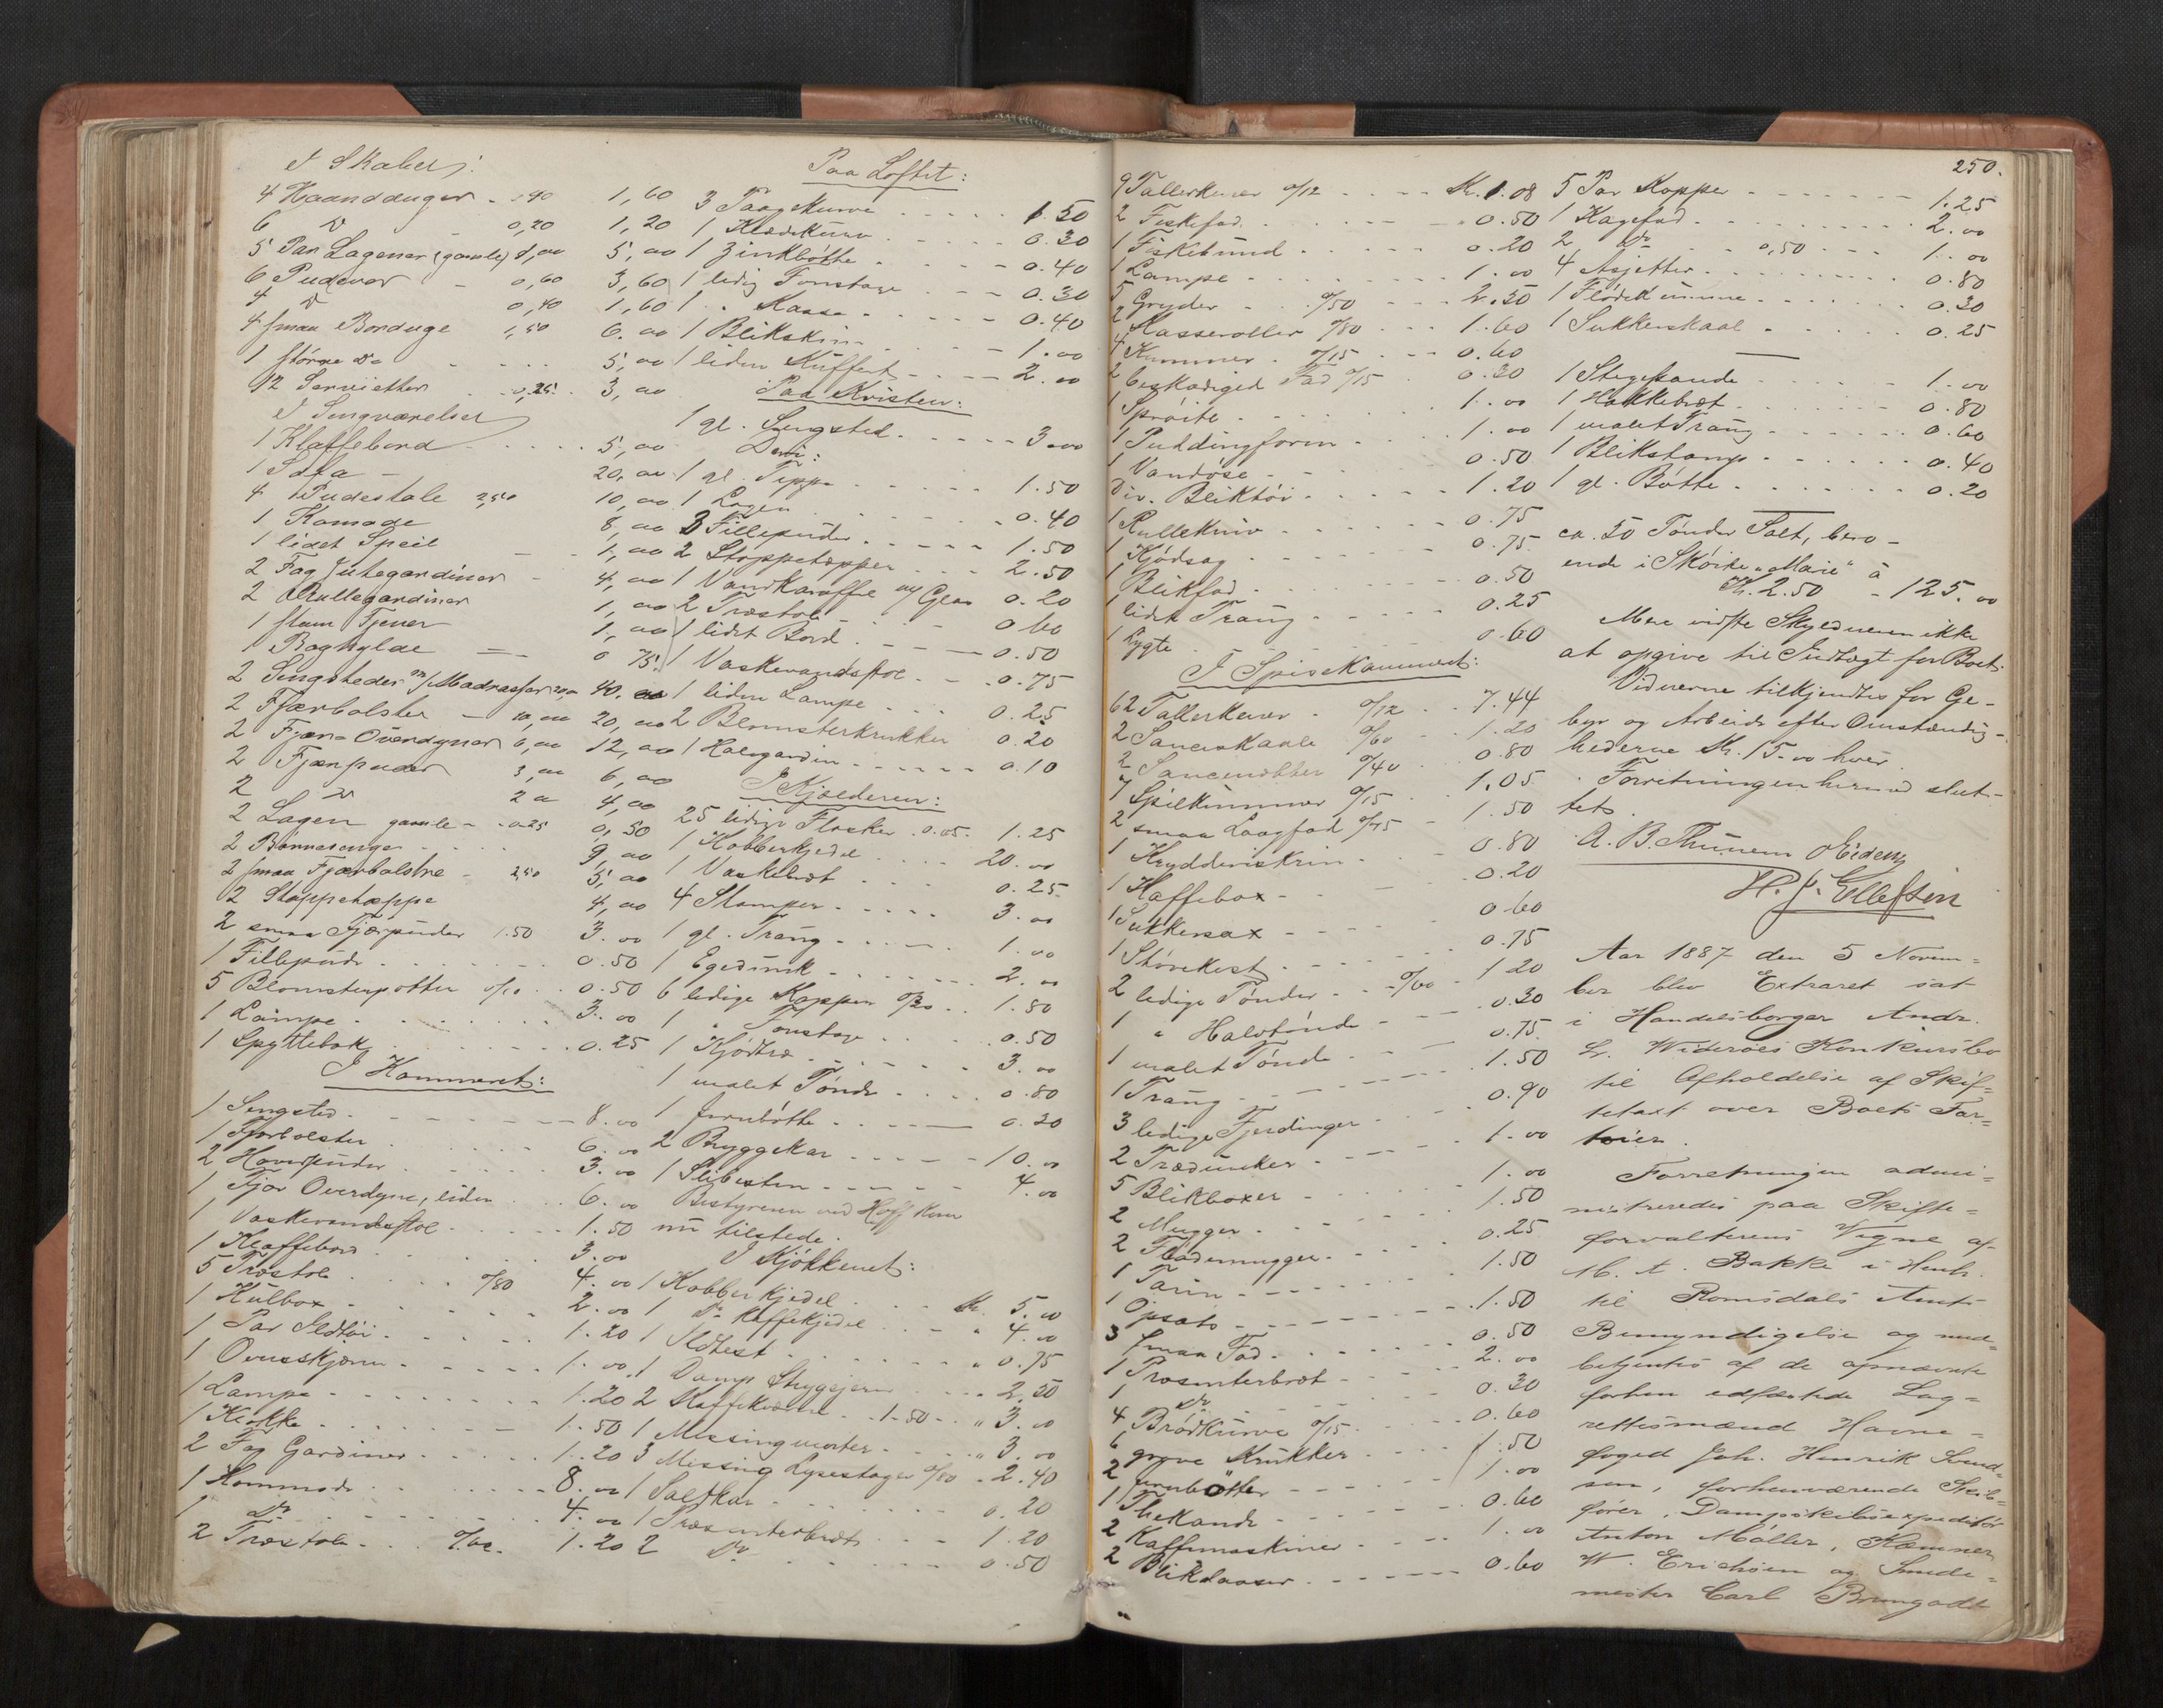 I Skabet:
4 Haandduger - 40 1,60
6 Do 0,20 1,20
5 Par Lagener (gamle) 1,00 5,00
6 Pudevar - 0,60 3,60
4 Do 0,40 1,60
4 smaa Borduge 1,50 6.00
1 större Do 5,00
12 Servietter 0,25 3,00
I Sengværelset
1 Klaffebord 5,00
1 Sofa - 20,00
4 Pudestole 2,50 10,00
1 Komode 8,00
1 lidet Speil 1,00
2 Fag Jutegardiner - 4,00
2 Rullegardiner 1,00
1 stum Tjener 1,00
1 Baghylde 0 75
2 Sengsteder m/Madrasser 20,00 40.00
2 Fjærbolster - 10,00 20,00
2 Fjær-Overdyner 6,00 12,00
2 Fjærpuder 3,00 6,00
2 Do 2 00 4,00
2 Lagen gamle - 0.25 0,50
2 Börnesenge 9,00
2 smaa Fjærbolstre - 2,50 5,00
2 Stoppetæppe 4,00
2 smaa Fjærpuder 1.50 3.00
1 Fillepude 0.50
5 Blomsterpotter 0/10 0.50
1 Lampe 3.00
1 Spyttebak 0.25
I Kammeret:
1 Sengsted 8.00
1 Fjærbolster 6.00
2 Hovedpuder 3.00
1 Fjær Overdyne, liden 6.00
1 Vaskevandsstol 1.50
1 Klaffebord 3.00
5 Træstole 0/80 4.00
1 Kulbox 2.00
1 Par Ildtöi 1.20
1 Ovnsskjærm 1.00
1 Lampe 1.20
1 Klokke 1.50
2 Fag Gardiner 1.20
1 Kommode 8.00
1 Do 4.00
2 Træstole 0/60 1.20
Paa Loftet:
3 Taagekurve 1.50
1 Klædekurv 0.30
1 Zinkbötte 0.40
1 ledig Fonstage 0.30
1 " Kasse 0.40
1 Blikskrin 1.00
1 liden Kuffert 2.00
Paa Kvisten:
1 gl. Sengsted 3.00
1 gl. Teppe 1.50
1 Lagen 0.40
3 Fillepuder 1.50
2 Stoppetæpper 2.50
1 Vandkaraffel m/ Glas 0.20
2 Træstole 0 60
1 lidet Bord 0.50
1 Vaskevandsstol 0.75
1 liden Lampe 0.25
2 Blomsterkrukker 0.20
1 Halvgardin 0.10
I Kjælderen:
25 ledige Flasker 0.05 1.25
1 Kobberkjedel 20.00
1 Vaskebræt 0.25
4 Stamper 3.00
1 gl. Traug 1.00
1 Egedunk 2.00
6 ledige Kopper 0/30 1.80
1 " Fonstage 0.50
1 Kjödtræ 3.00
1 malet Tönde 0.80
1 Jernbötte 0.20
2 Bryggekar 10.00
1 Slibesten 4.00
Bestyreren ved Hoff kom
nu tilstede.
I Kjökkenet:
1 Kobberkjedel Kr. 5.00
1 Do Kaffekjedel " 4.00
1 Ildtest " 0.75
1 Damp Strygejern 2,50
2 Kaffekværne 1.50 " 3.00
1 Messingmorter " 3.00
3 Messing Lysestager 0/80 2.40
1 Saltkar 0.20
1 Præsenterbret 1.20
2 Do 0.50
250.
9 Tallerkener 0/12 Kr. 1.08
2 Fiskefad 0.50
1 Fiskebund 0.20
1 Lampe 1.00
5 Gryder 0/50 2.50
2 Kasseroller 0/80 1.60
4 Kummer 0/15 0.60
2 beskadiged Fad 0/15 0.30
1 Spröite 1.00
1 Puddingform 1.00
1 Vandöse 0.50
Div. Bliktöi 1.20
1 Rullekniv 0.75
1 Kjödsag 0.75
1 Blikfad 0.50
1 lidet Traug 0.25
1 Lygte 0.60
I Spisekammeret:
62 Tallerkener 0/12 7.44
2 Sauceskaale 0/60 1.20
2 Saucenebber 0/40 0.80
7 Spilkummer 0/15 1.05
2 smaa Laagfad 0/75 1.50
1 Krydderiskrin 0.80
1 Kaffebox 0.20
1 Sukkersax 0 60
1 0.75
2 ledige Tönder 0/60 1 20
1 " Halvtönde 0.30
1 malet Tönde 0.75
1 Traug 1.50
3 ledige Fjerdinger 0.90
2 Trædunker 1.00
5 Blikboxer 1.00
2 Mugger 1.50
2 Flödemugger 0.25
1 Tarin 1.50
1 Opsats 1.50
3 smaa Fad 0.50
1 Præsenterbræt 2.00
1 Do 0.30
4 Brödkurve 0/15 0.60
6 grove Krukker 1.50
2 Jernbötter 1.00
1 Thekande 0.60
2 Kaffemaskiner 1.00
2 Blikdaaser 0.60
5 Par Kopper 1.25
1 Kagefad 2.00
2 Do 0,50 1.00
4 Asjetter 0.80
1 Flödekumme 0.30
1 Sukkerskaal 0.25
1 Stegepande 1.00
1 Hakkebræt 0.80
1 malet Traug 0.60
1 Blikstamp 0.40
1 gl. Bötte 0.20
ca. 50 Tönder Salt, bero-
ende i Sköite "Marie" à
Kr. 2.50 - 125.00
Mere vidste Skyldneren ikke
at opgive til Indtægt for Boet.
Vidnerne tilkjendtes for Ge-
byr og Arbeide efter Omstændig-
hederne Kr. 15.00 hver.
Forretningen hermed slut-
tet.
A. B. Thunem OEidem
H. J. Ellefsen
Aar 1887 den 5 Novem=
ber blev Extraret sat
i Handelsborger Andr.
L. Wideröes Konkursbo
til Afholdelse af Skif=
tetaxt over Boets Far=
töier.
Forretningen admi=
nistreredes paa Skifte=
forvalterens Vegne af
M. A. Bakke i Henh.
til Romsdals Amts
Bemyndigelse og med
betjentes af de opnævnte
forhen edfæstede Lag=
rettesmænd Havne=
foged Joh. Henrik Svend=
sen, forhenværende Skib=
förer, Dampskibsexpeditör
Anton Möller, Kæmner
W. Erichsen og Smede=
mester Carl Brungodt